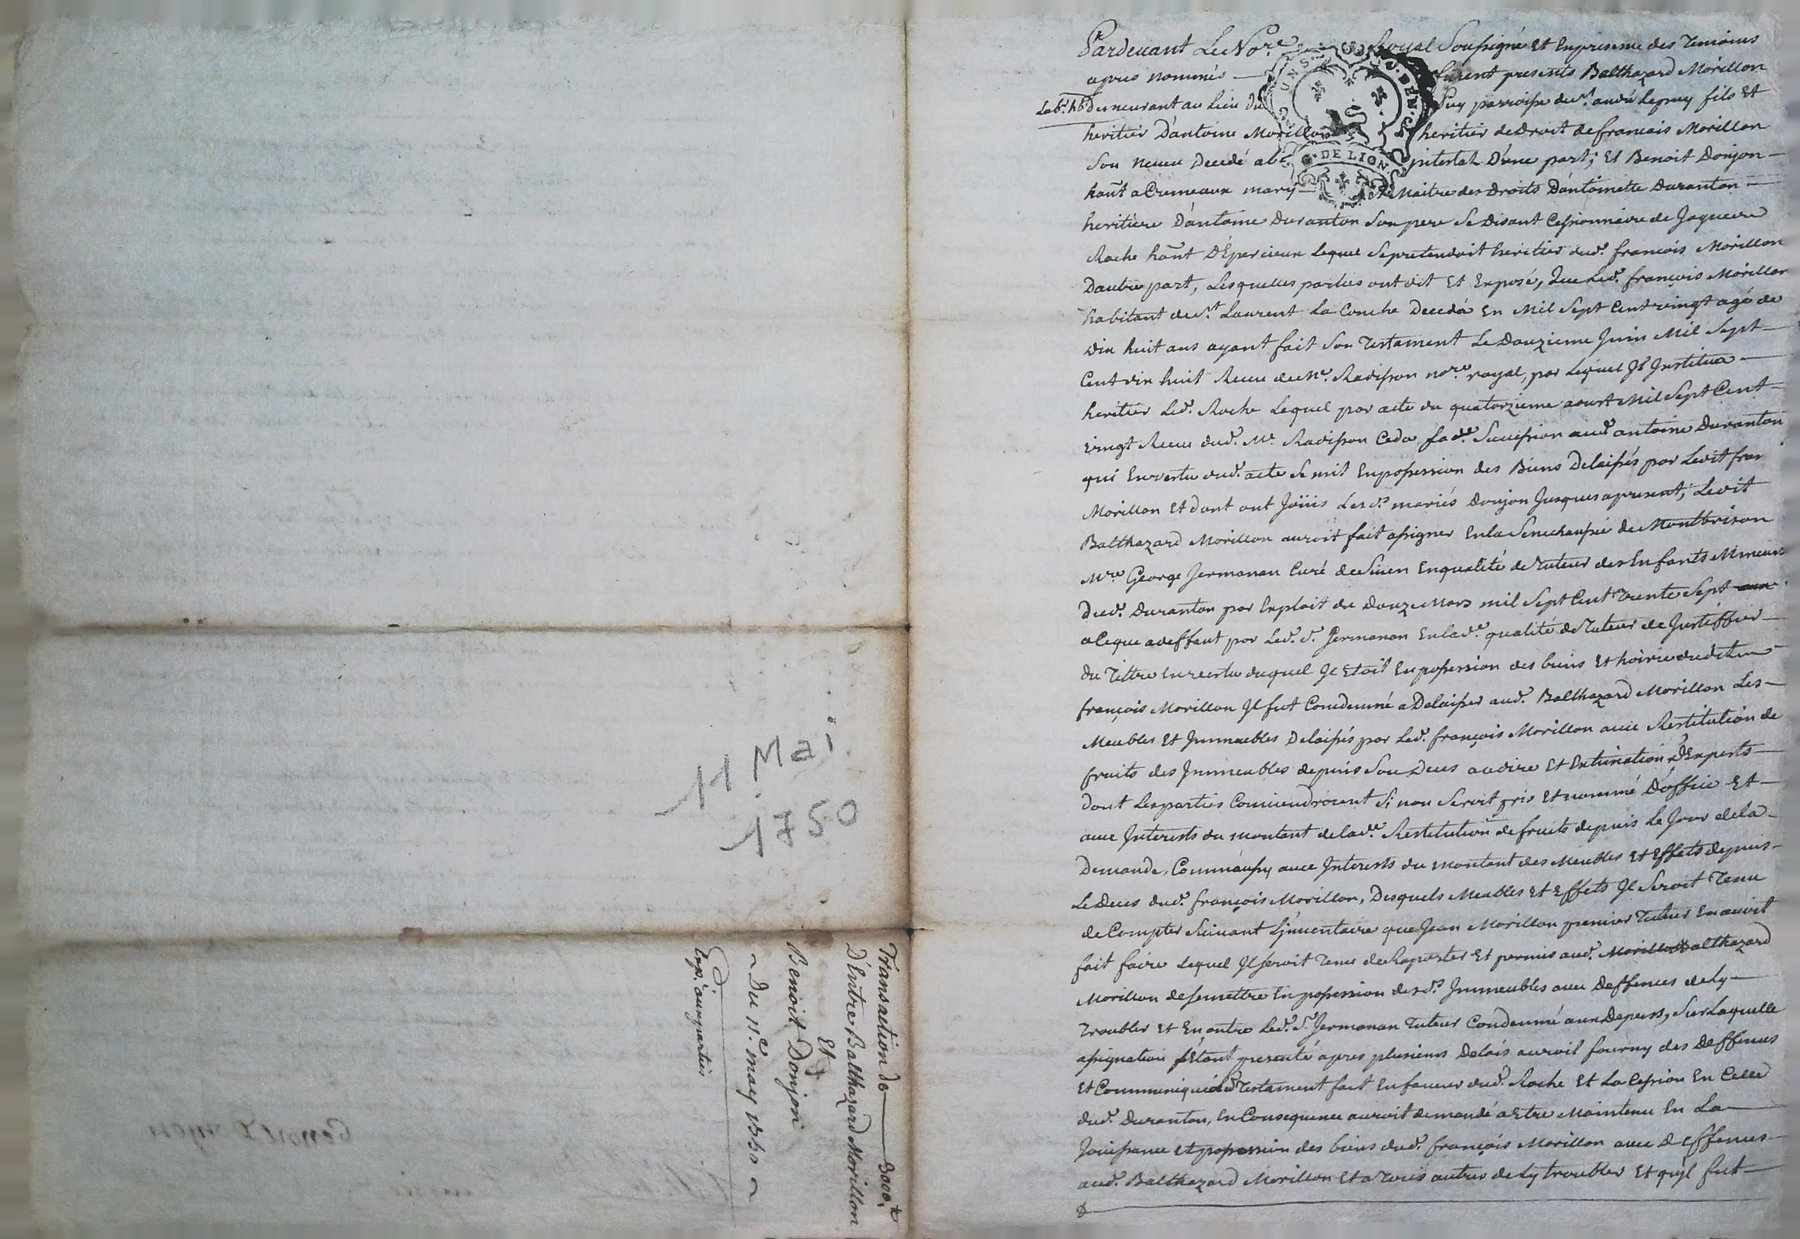 11 Mai
1750
Transaction de 3000ᵗ
D'Entre Balthazard Morillon
Et
Benoit Donjon
~ Du 11.ᵉ may 1750 ~
Exp.
G. DE LION
Pardevant Le No.ʳᵉ Royal Soussigné Et En presence des Temoins
apres nommés furent presents Balthazard Morillon
Lab.ʳ hb.ᵗ Demeurant au Lieu du Puy parroisse de S.ᵗ andré Lepuy fils Et
heritier D'antoine Morillon heritier de Droit de francois Morillon
Son neveu Decedé ab intestat D'une part; Et Benoit Donjon
hañt a Cremeaux mary Et Maitre des Droits D'antoinette Duranton
heritiere D'antoine Duranton Son pere Se Disant Cessionnaire de Jaqueme
Roche hañt D'Epercieux Lequel Se pretendoit heritier dud.ᵗ francois Morillon
Dautre part, Lesquelles parties ont dit Et Exposé, Que Led.ᵗ françois Morillon
habitant de S.ᵗ Laurent La Conche Decedà En Mil Sept Cent vingt agé de
dix huit ans ayant fait Son Testament Le Douzieme Juin Mil Sept
Cent dix huit Receu de M.ᵉ Radisson no.ʳᵉ royal, par Lequel Jl Jnstitua
heritier Led.ᵗ Roche Lequel par acte du quatorzieme aoust Mil Sept Cent
vingt Receu dud.ᵗ M.ᵉ Radisson Ceda lad.ᵗᵉ Succession aud.ᵗ antoine Duranton
qui En vertu dud.ᵗ acte Se mit En possession des Biens Delaissés par Ledit fran
Morillon Et dont ont Joüis Les d.ˢ mariés Donjon Jusques apresent, Ledit
Balthazard Morillon auroit fait assigner En la Senechaussée de Montbrison
M.ʳᵉ George Jermanan Curé de En qualité de Tuteur des Enfants Mineurs
dud.ᵗ Duranton par Exploit du Douze Mars mil Sept Cent Trente Sept
a Ce que a deffaut par Led.ᵗ S.ʳ Jermanan En lad.ᵉ qualité de Tuteur de Justiffier
du Tittre En vertu duquel Jl Etoit En possession des biens Et hoirie dudit
françois Morillon Jl fut Condemné a Delaisser aud.ᵗ Balthazard Morillon Les
Meubles Et Jmmeubles Delaissés par Led.ᵗ françois Morillon avec Restitution de
fruits des Jmmeubles depuis Son Deces au dire Et Estimation D'Experts
dont Les parties Conviendroient Si non Seroit pris Et nommé D'office Et
avec Jnterests du montant de lad.ᵉ Restitution de fruits depuis Le Jour de la
Demande, Comme aussy avec Jnterests du montant des Meubles Et Effets depuis
Le Deces dud.ᵗ françois Morillon, Desquels Meubles Et Effets Jl Seroit Tenu
de Compter Suivant L'jnventaire que Jean Morillon premier Tuteur En avoit
fait faire Lequel Jl Seroit Tenu de Raporter Et permis aud.ᵗ Balthazard
Morillon de Se mettre En possession desd.ˢ Jmmeubles avec Deffences de Ly
Troubler Et En outre Led.ᵗ S.ʳ Jermanan Tuteur Condemné aux Depens, Sur Laquelle
assignation S'Etant presenté apres plusieurs Delais auroit fourny des Deffences
Et Communiqué Testament fait En faveur dud.ᵗ Roche Et La Cession En Celle
dud.ᵗ Duranton, En Consequence auroit demandé a Etre Maintenu En La
Joüissance Et possession des biens dud.ᵗ françois Morillon avec Deffences
aud.ᵗ Balthazard Morillon Et a Tous autres de Ly troubler Et qu'jl fut